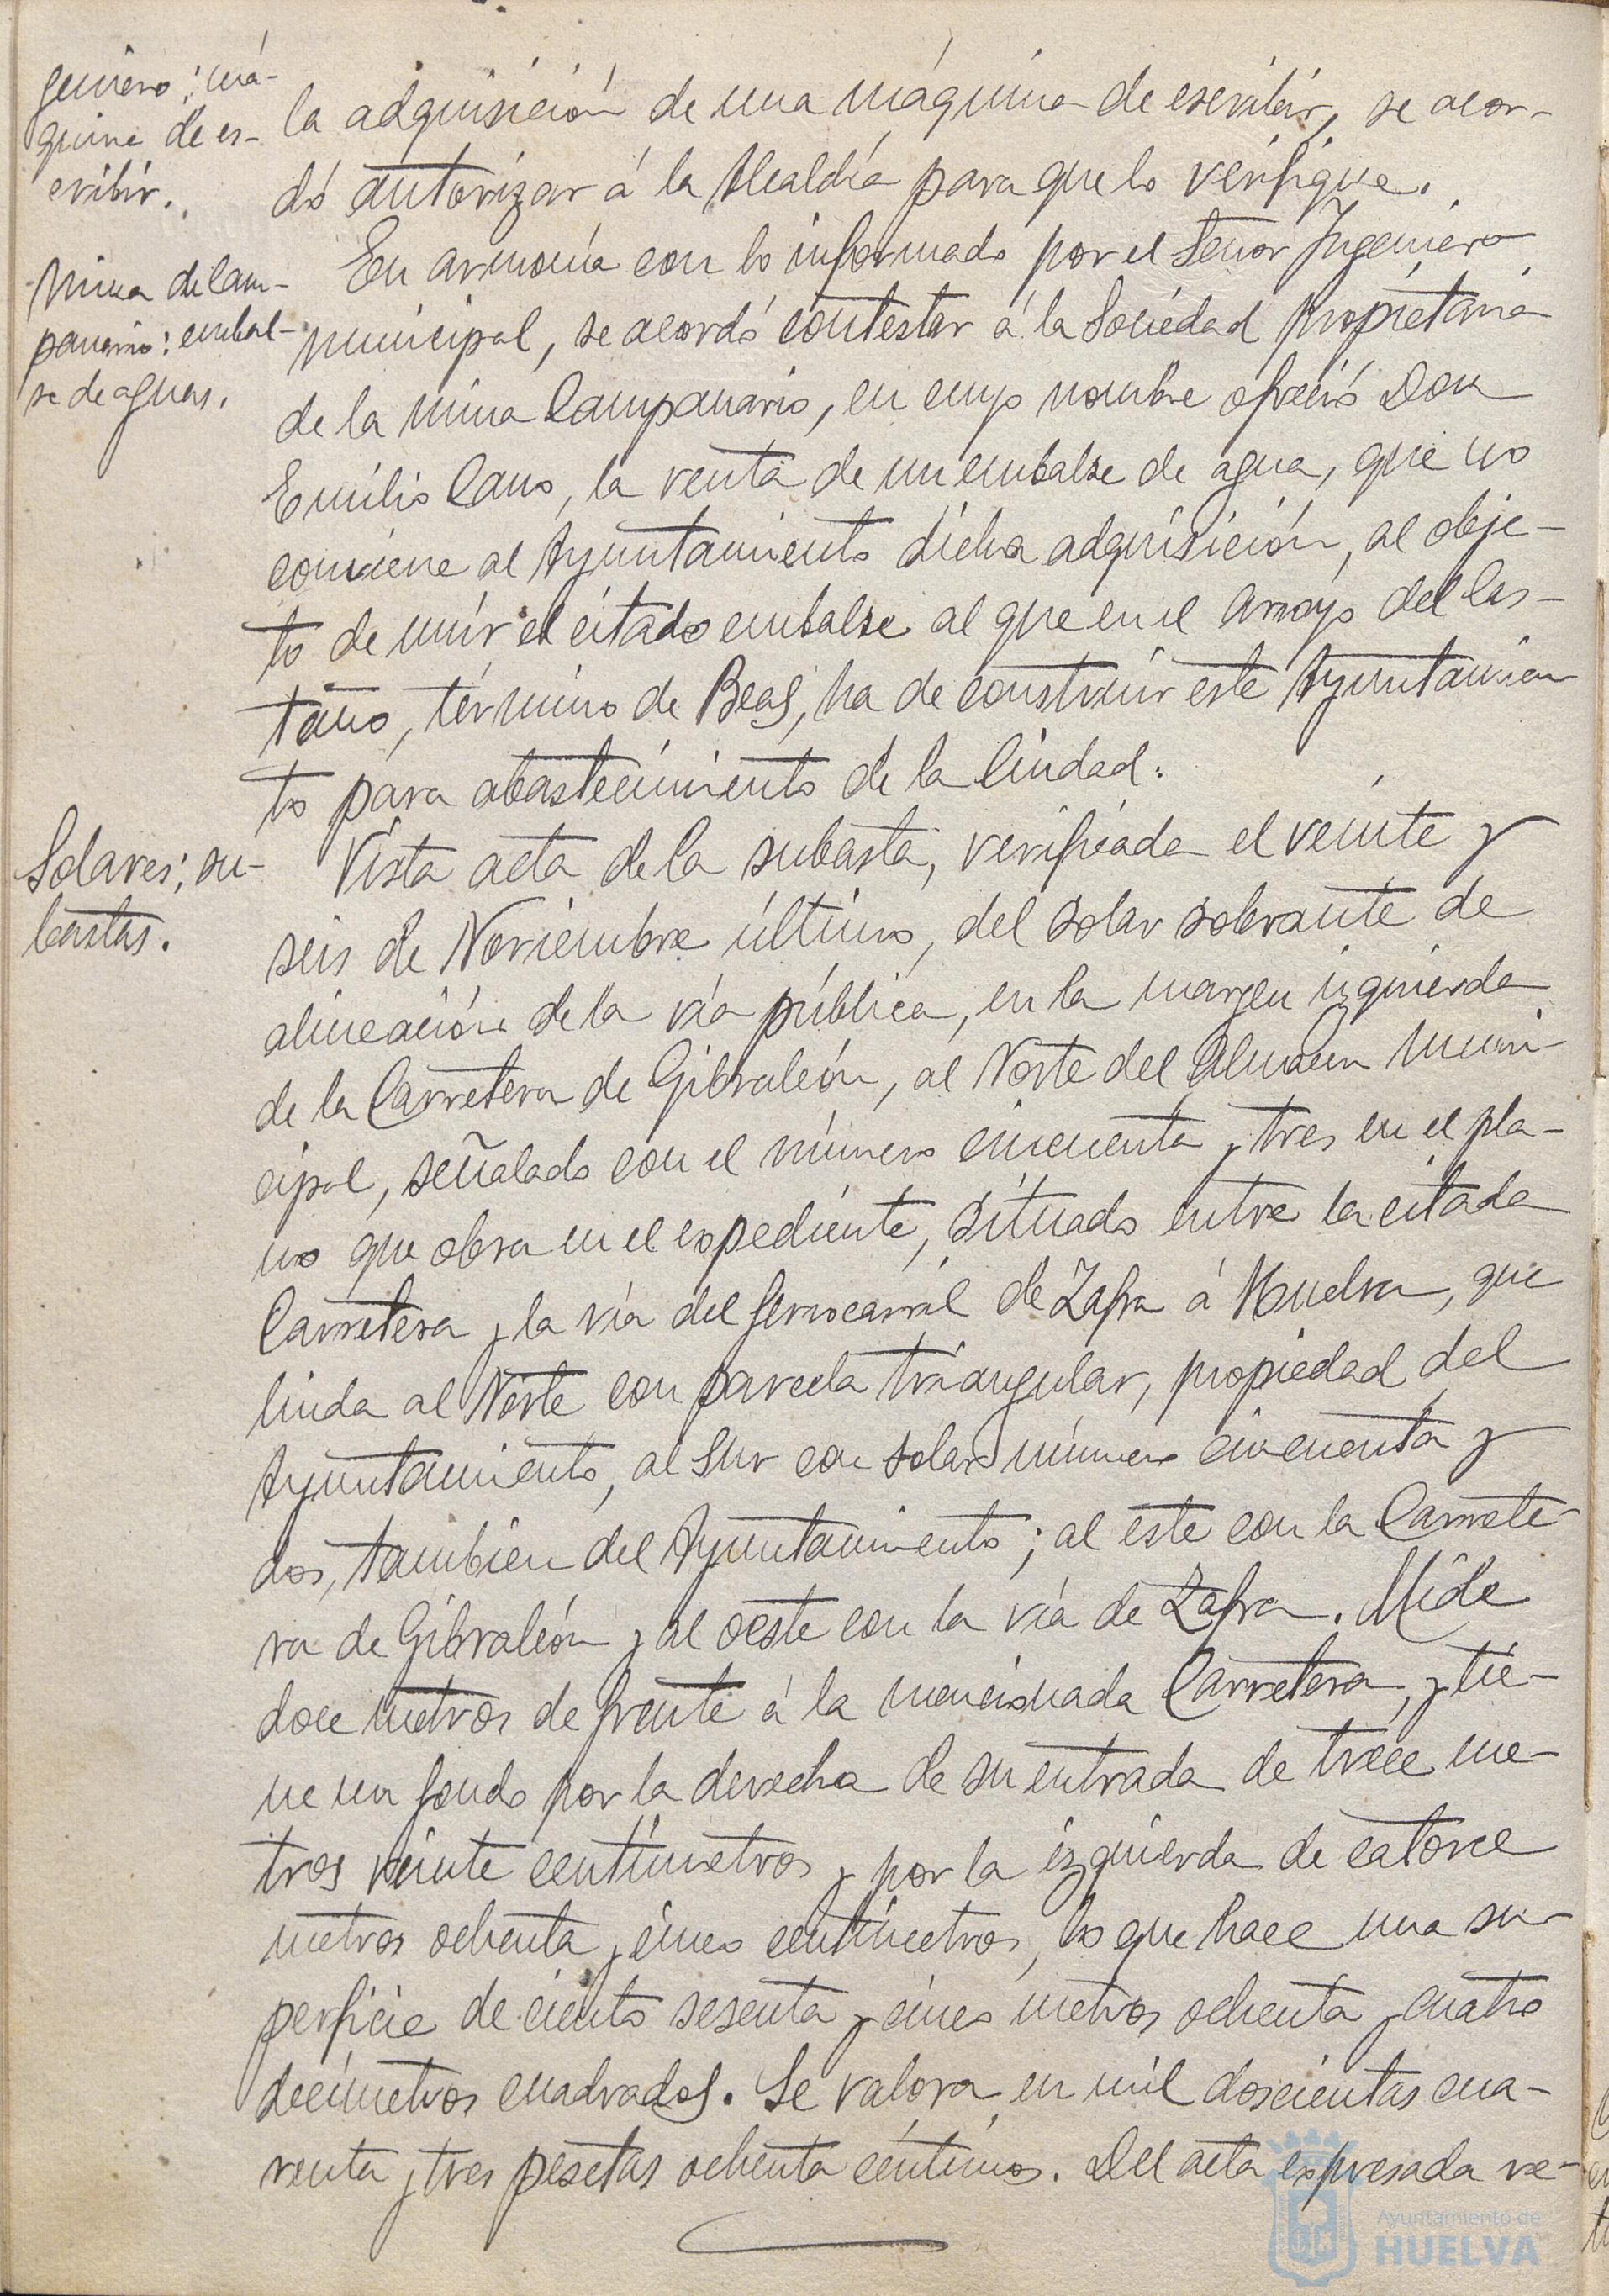 geniero: má-
quina de es-
cribir.
la adquisición de una máquina de escribir, se acor-
dó autorizar á la Alcaldía para que lo verifique.
Mina de Cam-
panario: embal-
se de aguas.
En armonía con lo informado por el Señor Ingeniero
municipal, se acordó contestar á la Sociedad propietaria
de la mina Campanario, en cuyo nombre ofreció Don
Emilio Cano, la venta de un embalse de agua, que no
conviene al Ayuntamiento dicha adquisición, al obje-
to de unir el citado embalse al que en el arroyo del Cas-
taño, término de Beas, ha de construir este Ayuntamien
to para abastecimiento de la Ciudad.
Solares; su-
bastas.
Vista acta de la subasta, verificada el veinte y
seis de Noviembre último, del solar sobrante de
alineación de la vía pública, en la margen izquierda
de la Carretera de Gibraleón, al Norte del Almacen muni-
cipal, señalado con el número cincuenta y tres en el pla-
no que obra en el expediente, situado entre la citada
Carretera y la vía del ferrocarril de Zafra á Huelva, que
linda al Norte con parcela triangular, propiedad del
Ayuntamiento, al Sur con solar número cincuenta y
dos, tambien del Ayuntamiento; al este con la Carrete-
ra de Gibraleón y al oeste con la vía de Zafra. Mide
doce metros de frente á la mencionada Carretera, y tie-
ne un fondo por la derecha de su entrada de trece me-
tros veinte centímetros y por la izquierda de catorce
metros ochenta y cinco centímetros, lo que hace una su-
perficie de ciento sesenta y cinco metros ochenta y cuatro
decímetros cuadrados. Se valora en mil doscientas cua-
renta y tres pesetas ochenta céntimos. Del acta expresada re-
Ayuntamiento de
HUELVA